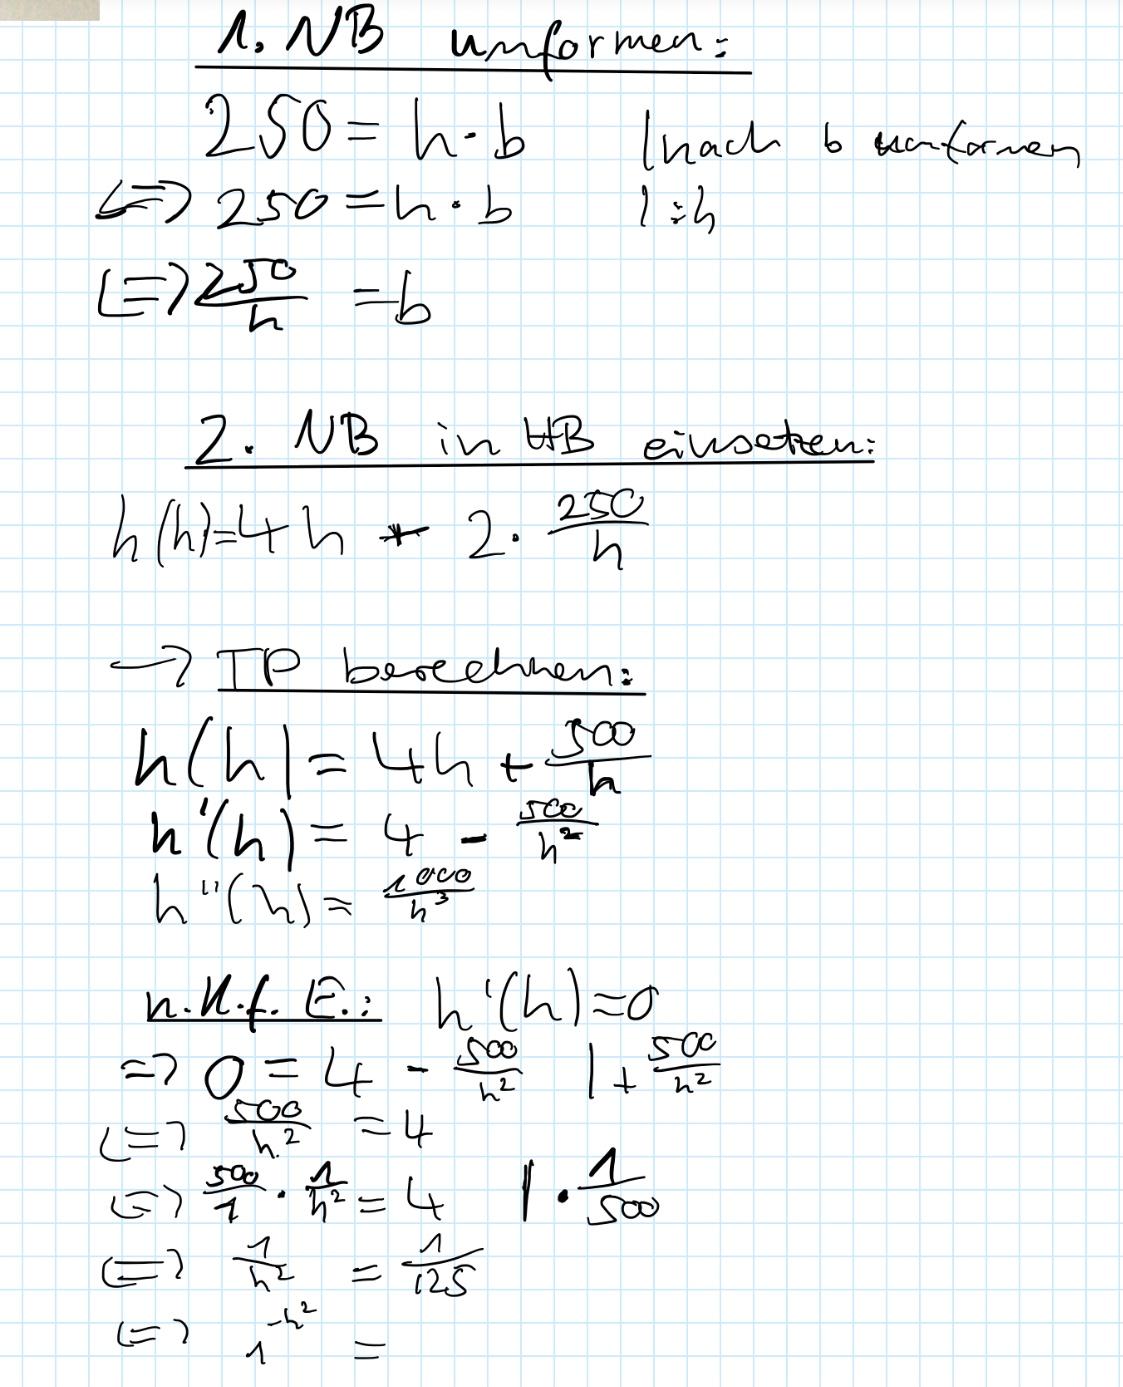 1. NB umformen:
250 = h · b | nach b umformen
<=> 250 = h · b | :h
<=> 250/h = b
2. NB in HB einsetzen:
h(h) = 4h + 2 · 250/h
→ TP berechnen:
h(h) = 4h + 500/h
h'(h) = 4 - 500/h²
h''(h) = 1000/h³
n.K.f. E.: h'(h) = 0
=> 0 = 4 - 500/h² | + 500/h²
<=> 500/h² = 4
<=> 500/1 · 1/h² = 4 | · 1/500
<=> 1/h² = 1/125
<=> 1^-h² =